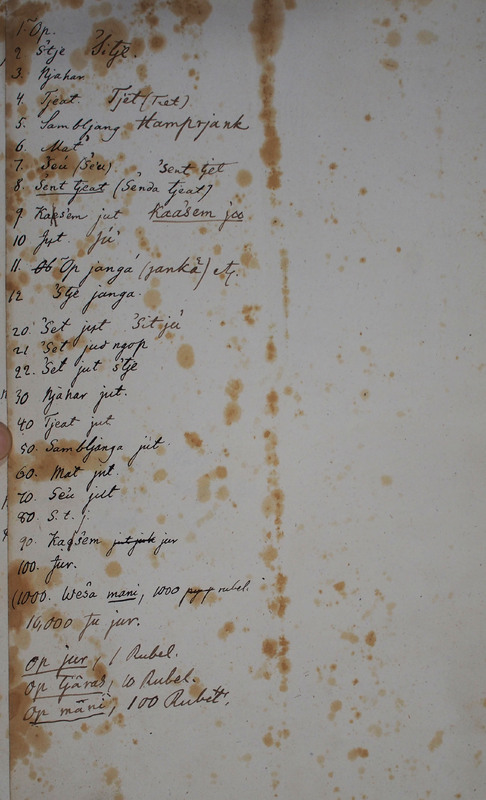 1. Op.
2 S'tje 'Sitje.
3. Njahar
4. Tjeat. Tjet (Tret)
5. Sambljang Hamprjank
6. Mat
7. Seu (Se'u) 'Sent tjet
8. S'ent tjeat (S'enda tjeat)
9 Kaesem jut Kaasem joo
10 Jyt. ju'
11. Op janga (janka)
12 S'tje janga.
20. 'Set jyt 'Sit ju'
21. 'Set jud ngop
22. 'Set jut s'tje
30 Njahar jut.
40 Tjeat jut
50. Sambljanga jut.
60. Mat jut
70. Se'u jut
80 S. t. j
90. Kaesem jur
100. Jur.
(1000. Wesa mani, 1000 rubel.
10,000 Ju jur.
Op jur, 1 Rubel.
Op Tjaras, 10 Rubel.
Op mani, 100 Rubel.